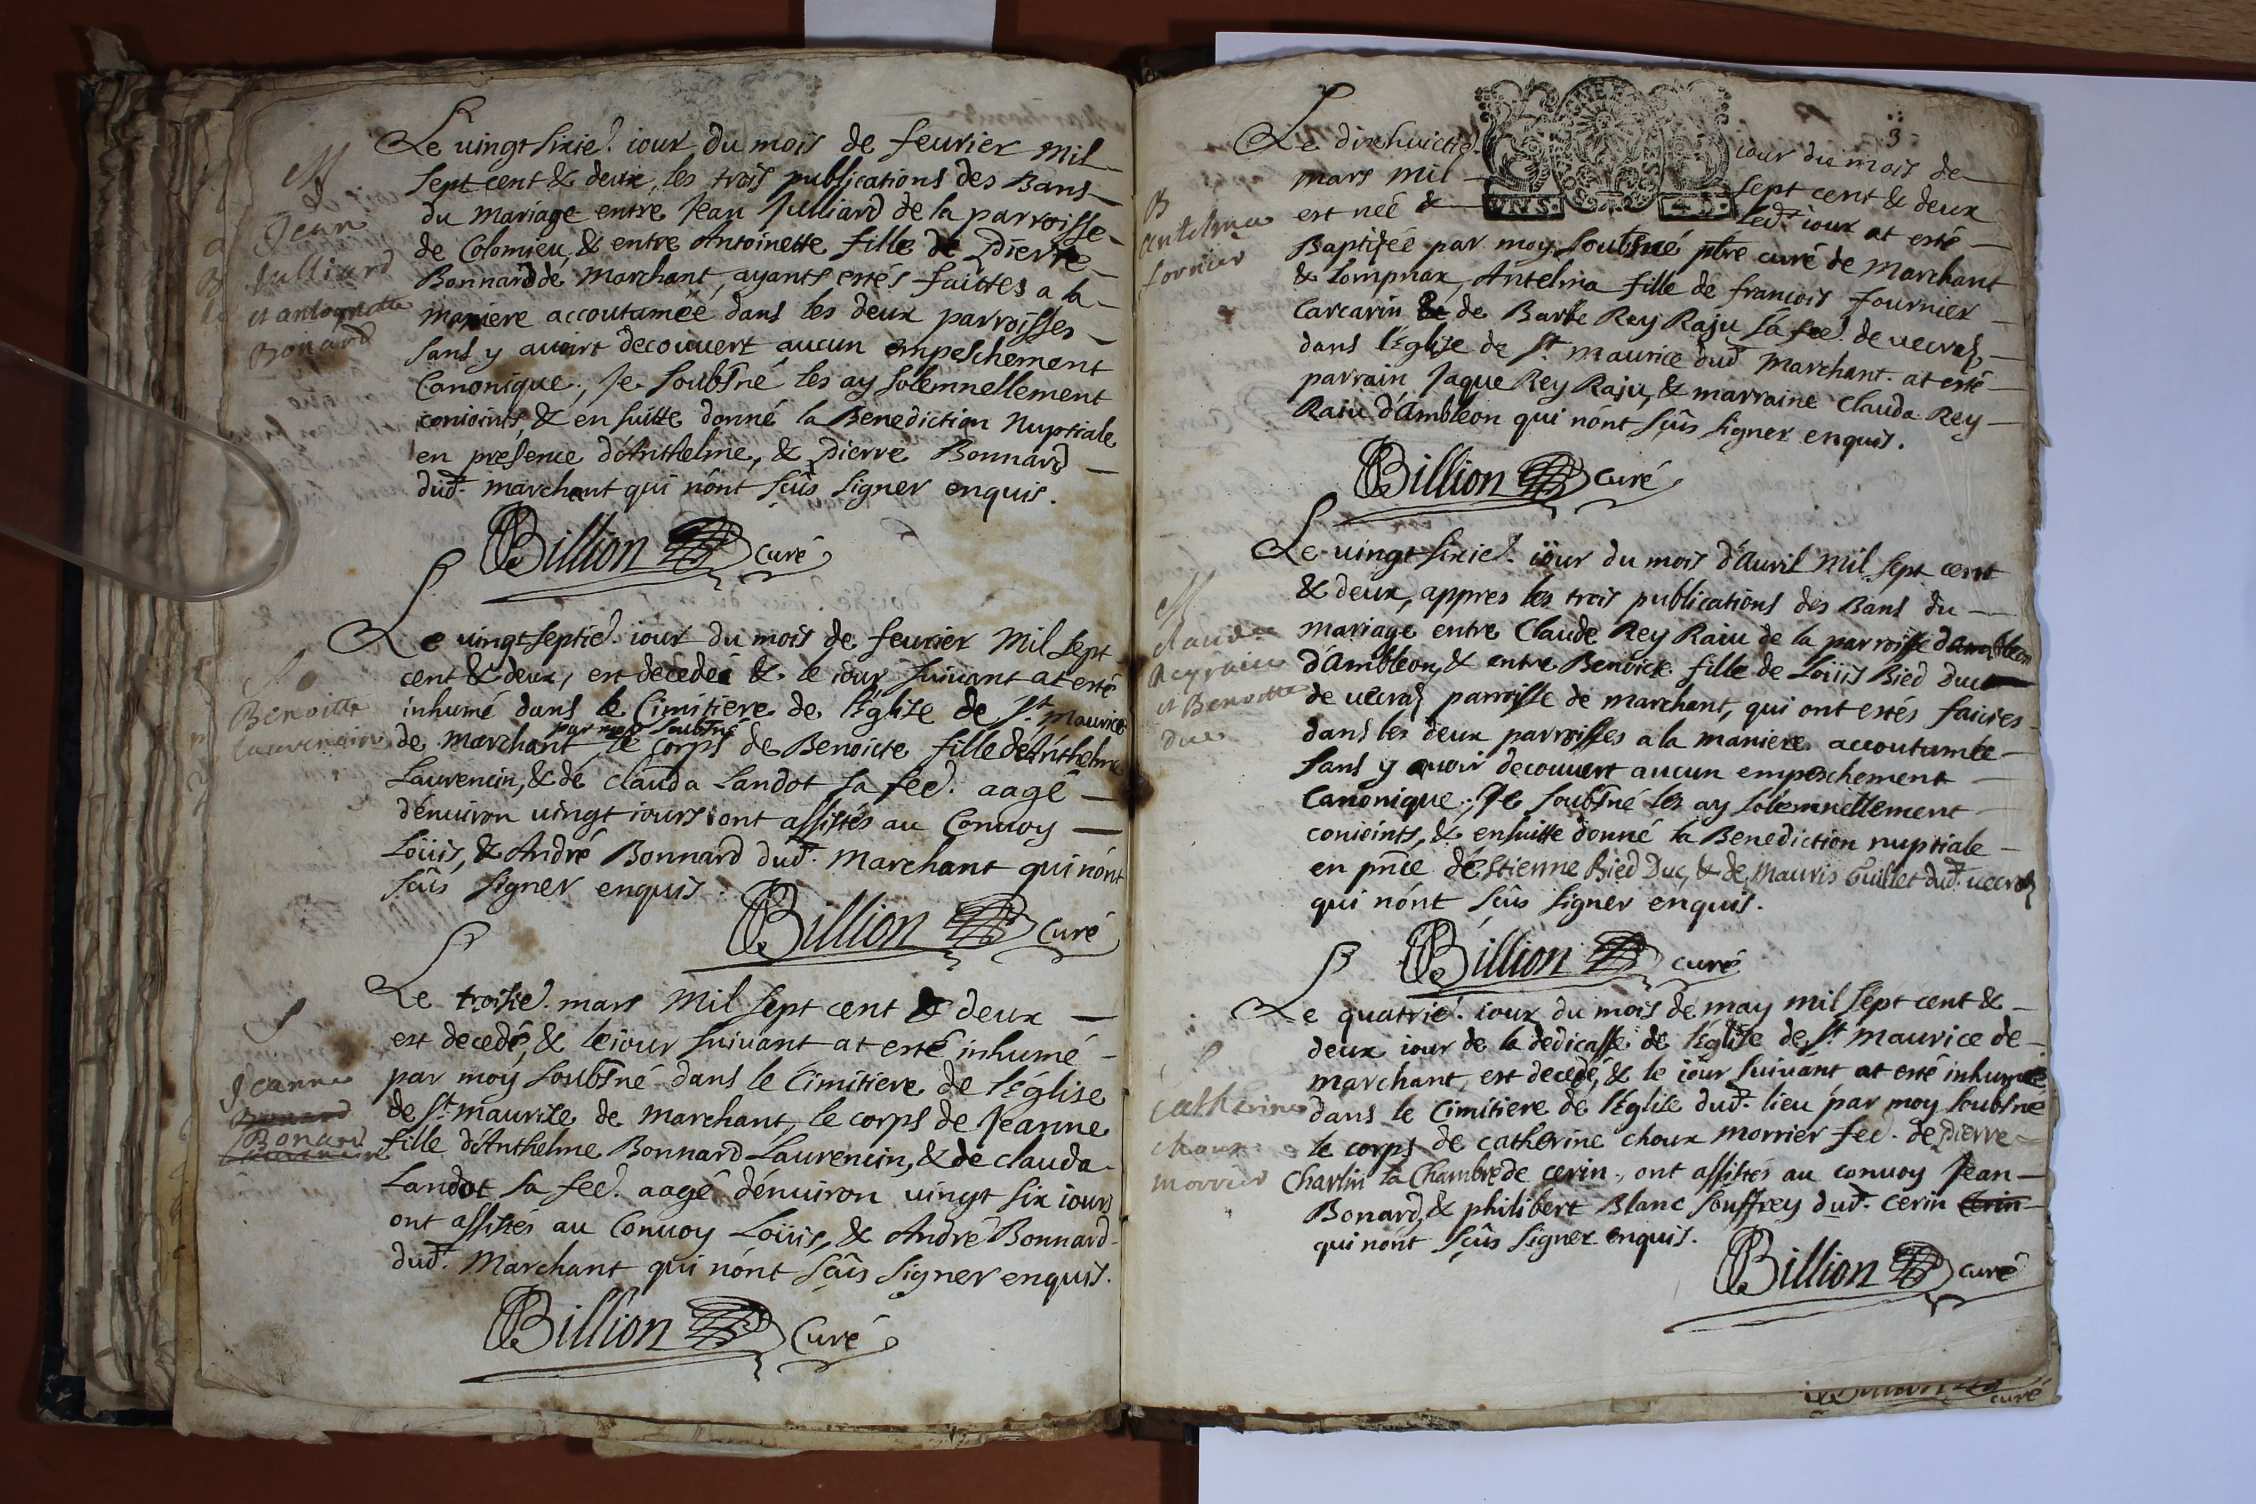 Le vingt sixie. iour du mois de feurier mil
sept cent & deux, les trois publications des Bans
du mariage entre Jean Julliard de la parroisse
de Colomieu, & entre Antoinette fille de Pierre
Bonnard de Marchant, ayants estés faittes a la
maniere accoutumée dans les deux parroisses
sans y avoir decouvert aucun empeschement
Canonique; Je soubsné les ay solemnellement
conioints, & en suitte donné la Benediction Nuptiale
en presence d'Anthelme, & Pierre Bonnard
dud. marchant qui n'ont sçûs signer enquis.
Billion curé
M
Jean
Julliard
et antoynette
Bonard
Le vingt septie. iour du mois de feurier mil sept
cent & deux, est decedée & le iour suivant at esté
inhumé dans le Cimitiere de l'Église de St. Maurice
par moy soubsné
de Marchant le corps de Benoicte fille d'Anthelme
Laurencin, & de Clauda Landot sa fee. aagé
d'enuiron vingt iours: ont assistés au Conuoy
Loüis, & André Bonnard dud. Marchant qui n'ont
sçûs signer enquis.
Billion Curé
Benoitte
Laurencin
Le troisie. mars mil sept cent & deux
est decedé, & le iour suivant at esté inhumé
par moy soubsné dans le Cimitiere de l'Église
de St. Maurice de Marchant, le corps de Jeanne
fille d'Anthelme Bonnard Laurencin, & de Clauda
Landot sa fee. aagé d'enuiron vingt six iours
ont assistés au Conuoy Loüis, & André Bonnard
dud. Marchant qui n'ont sçûs signer enquis.
Billion Curé
S
Jeanne
Bonard
Bonard
Laurencin
3
Le dixhuictie. iour du mois de
mars mil sept cent & deux
est neé & led. iour at esté
VNS. 4 D.
Baptisée par moy soubsné ptre curé de Marchant
& Lompnax, Antelma fille de françois fournier
Carcarin & de Barbe Rey Raju sa fee. de vecras,
dans l'Eglise de St. Maurice dud. Marchant. at esté
parrain Jaque Rey Raju, & marraine Clauda Rey
Raiu d'Ambleon qui n'ont sçûs signer enquis.
Billion curé
B
Antelma
fornier
Le vingt sixie. iour du mois d'Auril mil sept cent
& deux, appres les trois publications des Bans du
mariage entre Claude Rey Raiu de la parroisse d'ambleon
d'Ambleon, & entre Benoicte fille de Loüis Bied duc
de vecras parroisse de marchant, qui ont estés faictes
dans les deux parroisses a la maniere accoutumée
sans y avoir decouvert aucun empeschement
Canonique; Je soubsné les ay solemnellement
conioints, & ensuitte donné la Benediction nuptiale
en pnce d'Estienne Bied Duc, & de Mauris Guillet dud. vecras
qui n'ont sçûs signer enquis.
Billion curé
M
claude
Reyraiu
et Benoitte
duc
Le quatrie. iour du mois de may mil sept cent &
deux iour de la dedicasse de l'Église de St. Maurice de
marchant, est decedé, & le iour suivant at esté inhumée
dans le Cimitiere de l'Église dud. lieu par moy soubsné
le corps de Catherine choux morrier fee. de Pierre
Charlin la Chambre de cerin, ont assistés au conuoy Jean
Bonard, & philibert Blanc Souffrey dud. Cerin Cerin
qui n'ont sçûs signer enquis.
Billion curé
S
Catherine
choux
morrier
curé